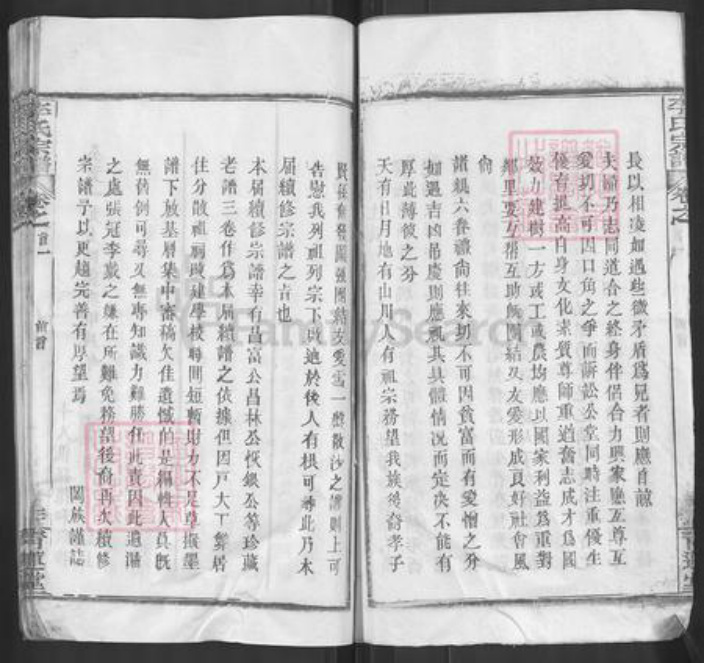 長以相凌如遇些微矛盾爲兄者則應自諒
夫婦乃志同道合之終身伴侶合力興家應互尊互
愛切不可因口角之爭而訴訟公堂同時注重優生
優育提高自身文化素質尊師重道奮志成才爲國
效力建樹一方或工或農均應以國家利益爲重對
鄉里要互幫互助無團結及友愛形成良好社會風
尙
諸親六眷禮尙往來切不可因貧富而有愛憎之分
如遇吉凶吊慶則應視其具體情況而定决不能有
厚此薄彼之分
天有日月地有山川人有祖宗務望我族後裔孝子
賢孫奮發圖强團結友愛雪一磐散沙之譏則上可
告慰我列祖列宗下以迪於後人有根可尋此乃本
屆續修宗譜之旨也
本屆續修宗譜幸有昌富公昌林公恢銀公等珍藏
老譜三卷作爲本屆續譜之依據但因戶大丁繁居
住分散祖祠改建學校聯間短暫財力不足草擬墨
譜下放基層集中審稿欠佳遺憾的是編輯人員旣
無舊例可尋又無專知識力難勝任此責因此遺漏
之處張冠李戴之嫌在所難免務望後裔再次續修
宗譜予以更趨完善有厚望焉
闔族謹誌
李氏宗譜
卷之首
李氏宗譜
卷之首一
FamilySearch